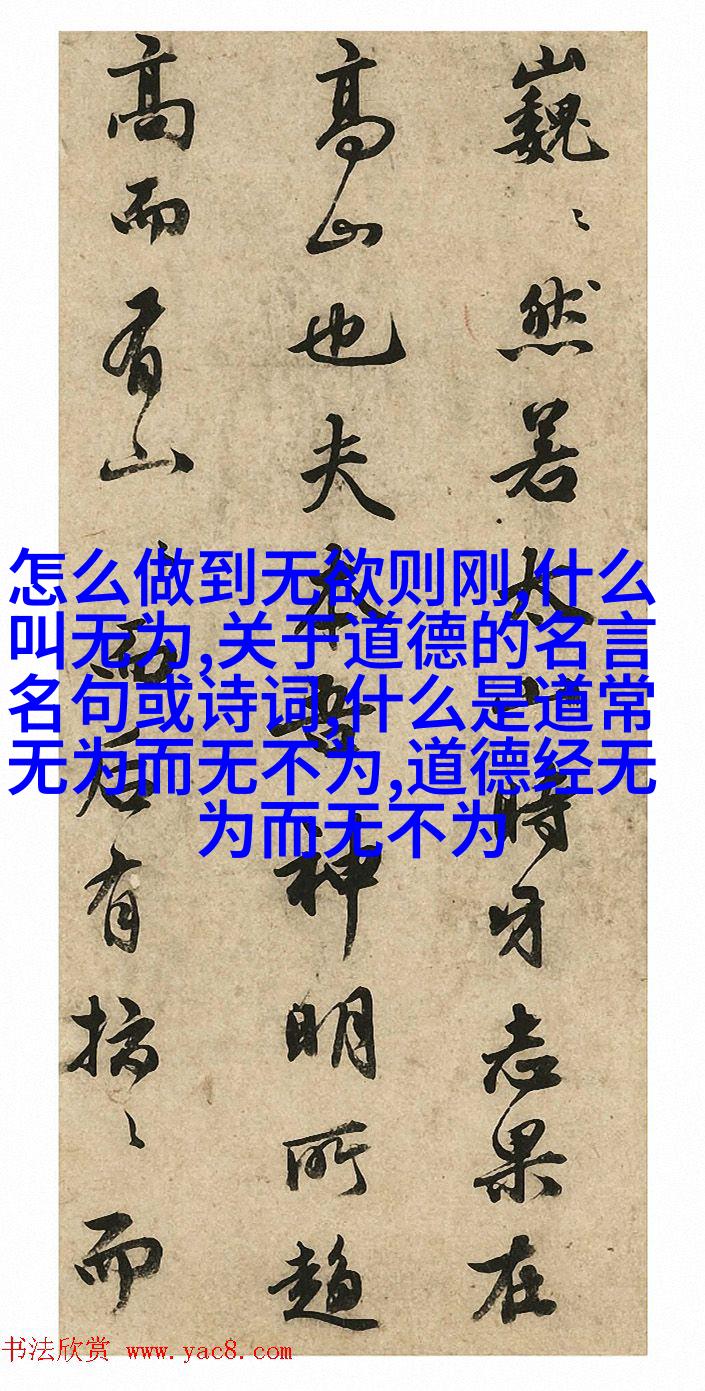 巍〻然若太山時牙志果在
高山也夫本吾神明所趨
高而有山而后有搞〻而
怎么做到无欲则刚,什么
叫无为,关于道德的名言
名句或诗词,什么是道常
无为而无不为,道德经无
为而无不为
书法欣赏 www.yac8.com